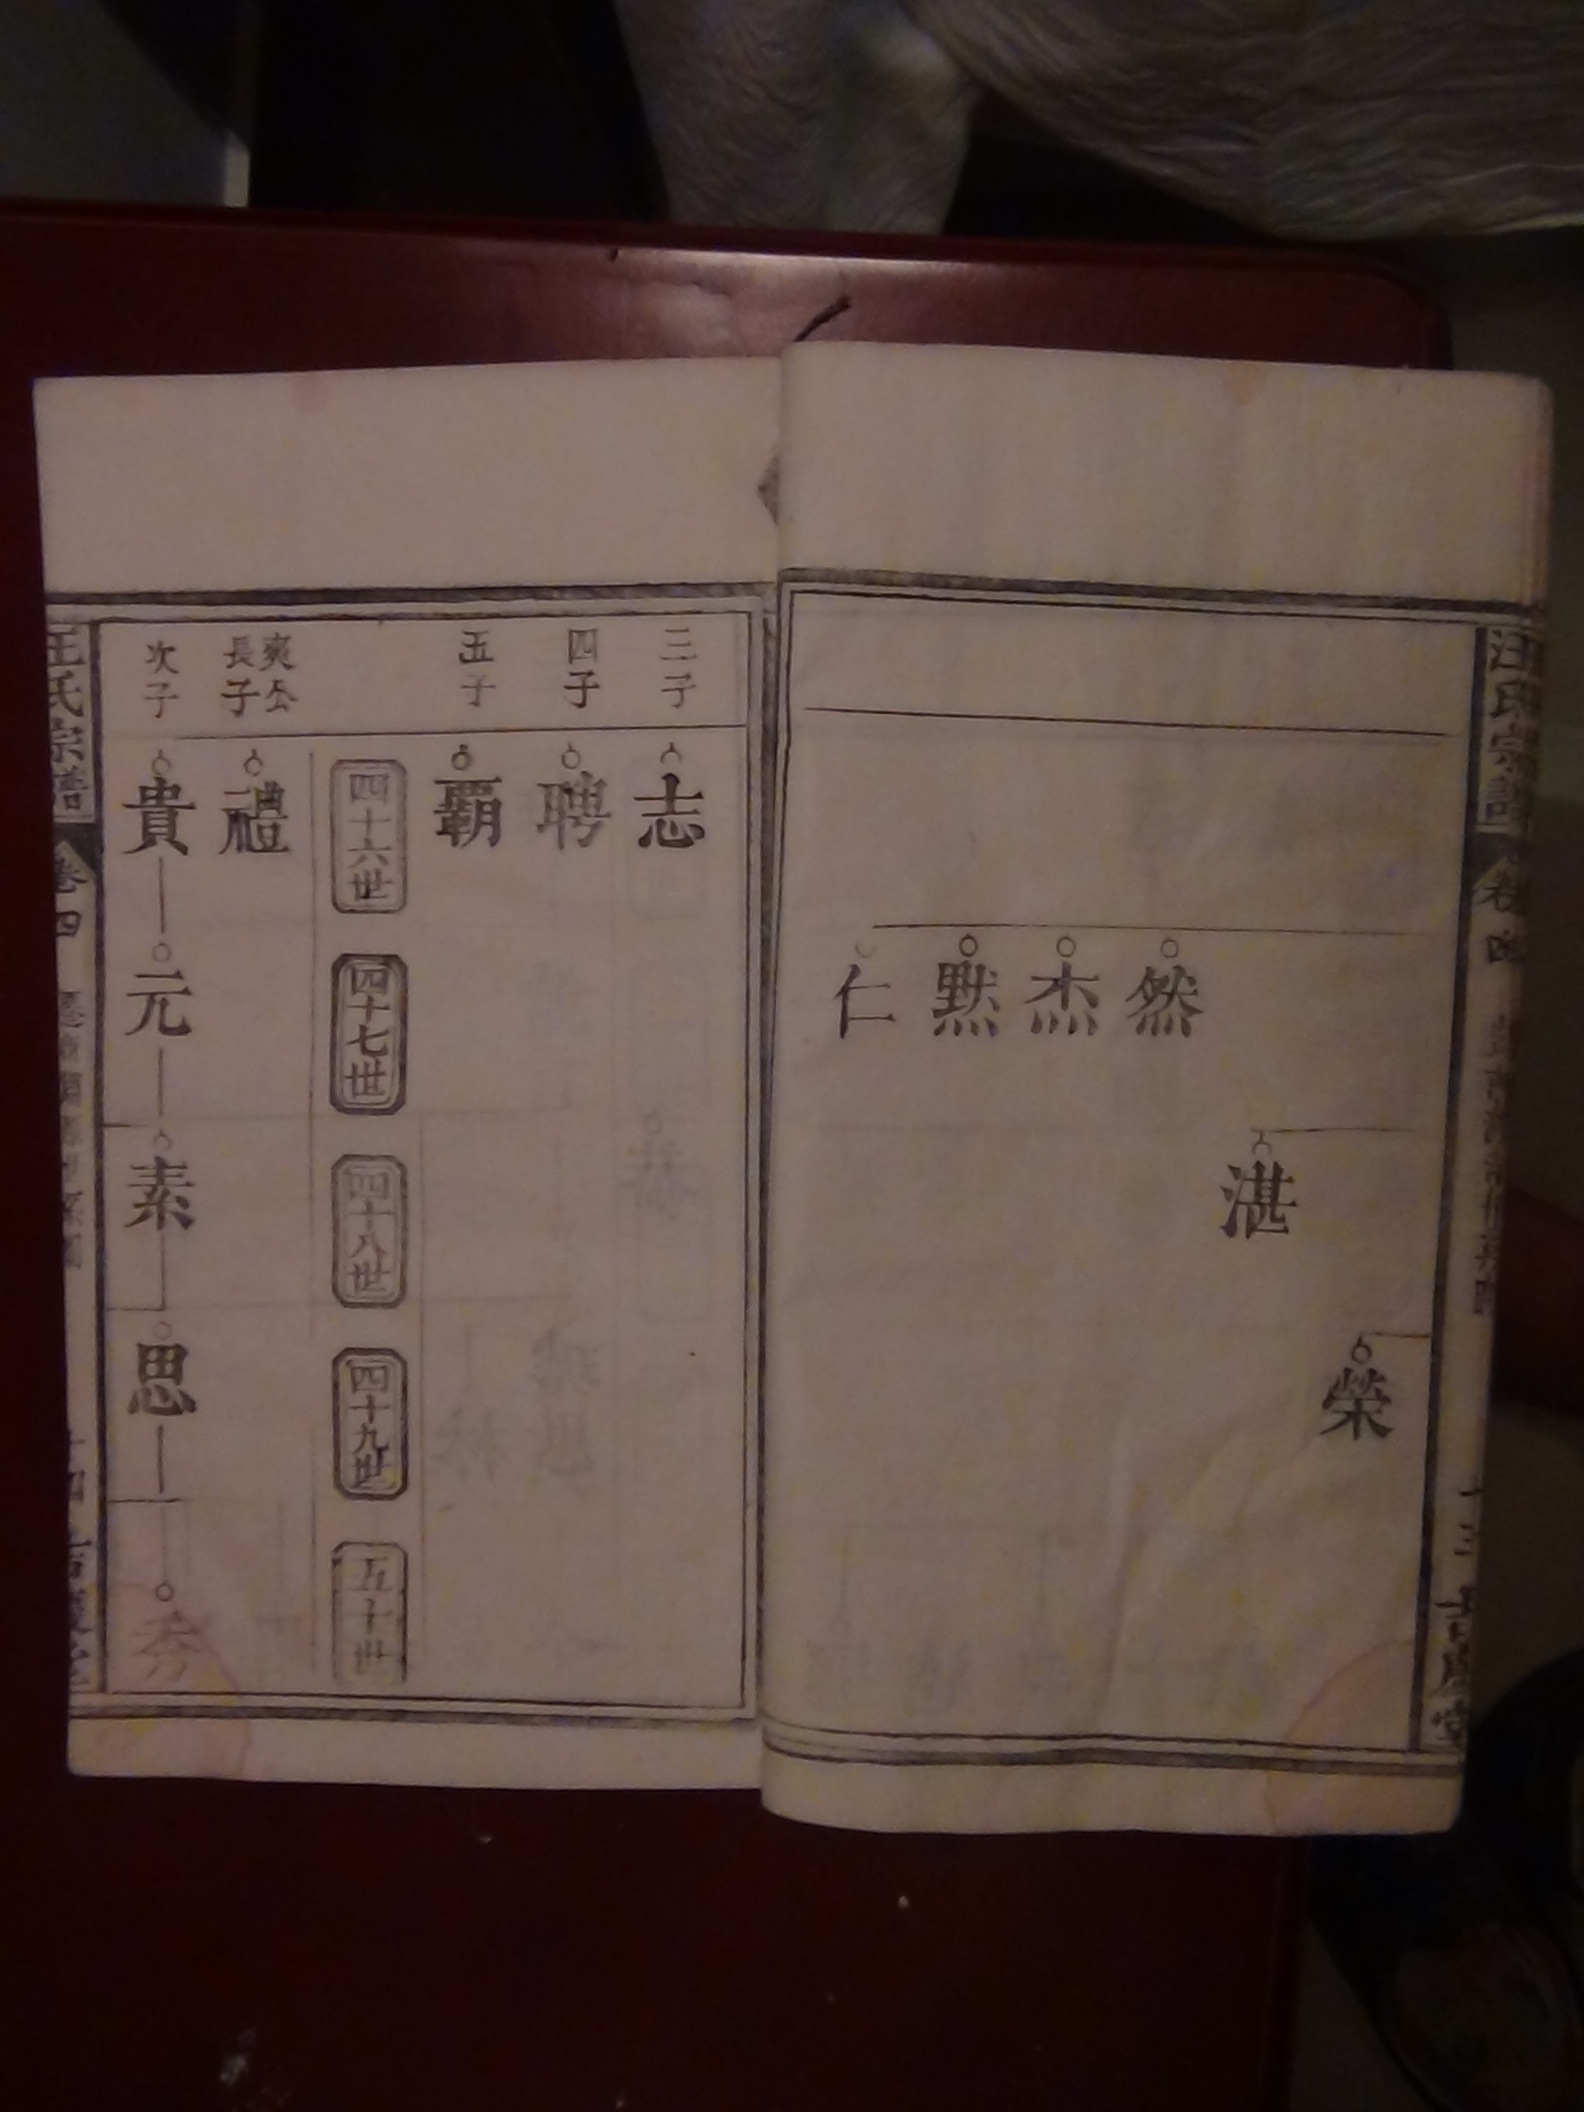 汪氏宗譜
卷四
十三
榮
湛
然
杰
默
仁
三子
志
四子
聘
五子
覇
四十六世
四十七世
四十八世
四十九世
五十世
爽公
長子
禮
次子
貴
元
素
思
秀
汪氏宗譜
卷四
十四